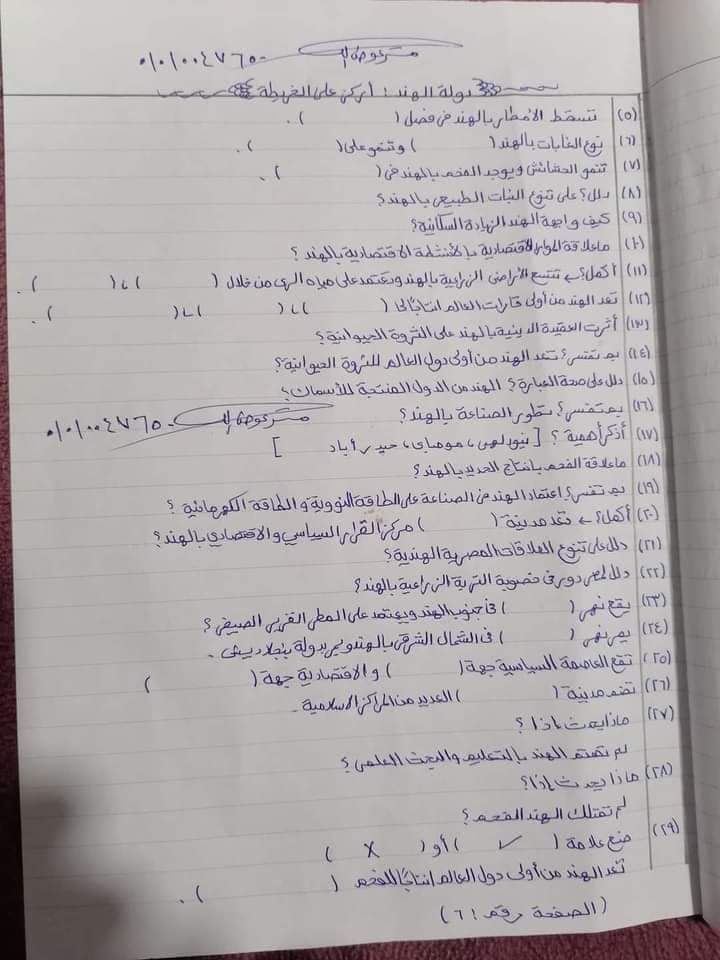 ٠١٠١٠٠٤٧٦٥٠
دولة الهند : أركز على الخريطة
(٥) تتسقط الأمطار بالهند فى فصل ( ).
(٦) نوع الغابات بالهند ( ) وتنمو على ( ).
(٧) تنمو الحشائش ويوجد الفحم بالهند فى ( ).
(٨) دلل؟ على تنوع النبات الطبيعى بالهند؟
(٩) كيف واجهة الهند الزيادة السكانية؟
(١٠) ما علاقة الموارد الاقتصادية بالأنشطة الاقتصادية بالهند؟
(١١) أكمل؟ ← تتسع الأراضى الزراعية بالهند وتعتمد على مياه الرى من خلال ( ) ، ( ).
(١٢) تعد الهند من أولى قارات العالم انتاجًا لـ ( ) ، ( ) ، ( ).
(١٣) أثرت العقيدة الدينية بالهند على الثروة الحيوانية؟
(١٤) بم تفسر؟ تعد الهند من أولى دول العالم للثروة الحيوانية؟
(١٥) دلل على صحة العبارة؟ الهند من الدول المنتجة للأسماك؟
(١٦) بم تفسر؟ تطور الصناعة بالهند؟
٠١٠١٠٠٤٧٦٥٠
(١٧) أذكر أهمية؟ [نيودلهى، مومباى، حيدر أباد ]
(١٨) ما علاقة الفحم بانتاج الحديد بالهند؟
(١٩) بم تفسر؟ اعتماد الهند فى الصناعة على الطاقة النووية والطاقة الكهرمائية؟
(٢٠) أكمل؟ ← تعد مدينة ( ) مركز القرار السياسي والاقتصادي بالهند؟
(٢١) دلل على تنوع العلاقات المصرية الهندية؟
(٢٢) دلل لمصر دور فى خصوبة التربة الزراعية بالهند؟
(٢٣) يقع نهر ( ) فى جنوب الهند ويعتمد على المطر الغزير الصيفى؟
(٢٤) يمر نهر ( ) فى الشمال الشرقى بالهند ويمر بدولة بنجلاديش.
(٢٥) تقع العاصمة السياسية جهة ( ) والاقتصادية جهة ( )
(٢٦) تضم مدينة ( ) العديد من المراكز الاسلامية.
(٢٧) ماذا يحدث إذا؟
لم تهتم الهند بالتعليم والبحث العلمى؟
(٢٨) ماذا يحدث إذا؟
لم تمتلك الهند الفحم؟
(٢٩) ضع علامة ( ✓ ) أو ( X )
تعد الهند من أولى دول العالم انتاجًا للفحم ( ).
(الصفحة رقم: ٦)